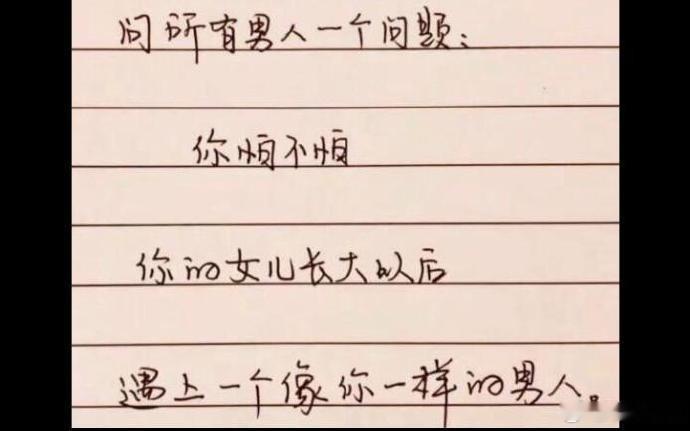 问所有男人一个问题：
你怕不怕
你的女儿长大以后
遇上一个像你一样的男人。